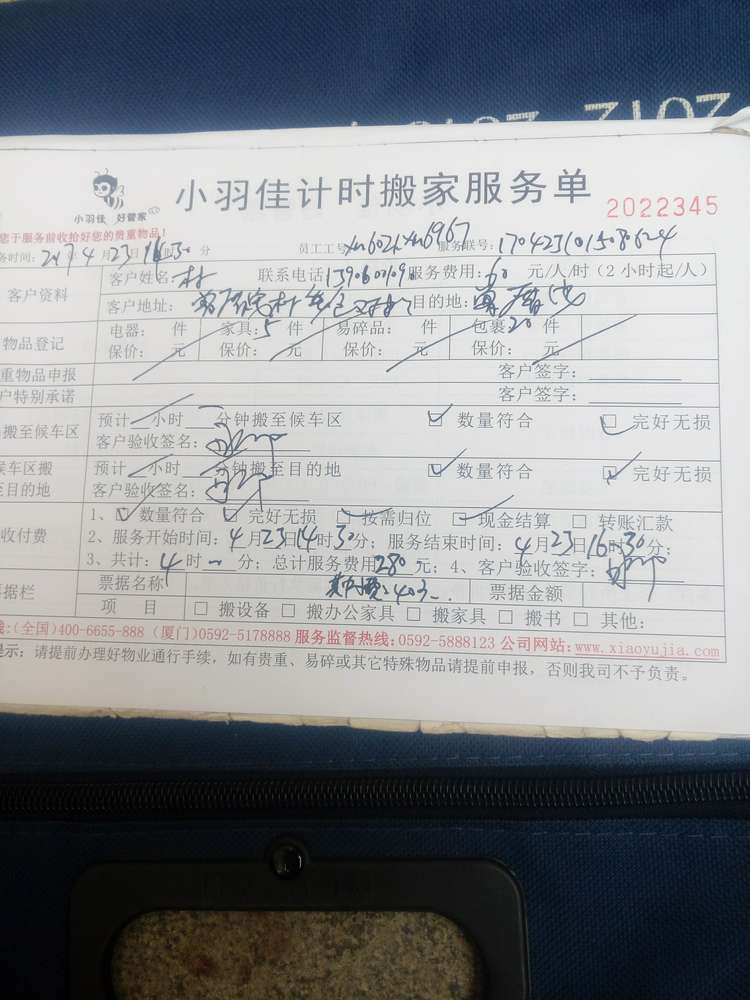 小羽佳 好管家
小羽佳计时搬家服务单
2022345
您于服务前收拾好您的贵重物品!
务时间: 2017年4月23日14时30分 员工工号: xm6021xm6967 服务联号:
客户资料
客户姓名: 林 联系电话 服务费用: 60 元/人/时(2小时起/人)
客户地址: 目的地:
物品登记
电器: 件 家具: 5 件 易碎品: 件 包裹 20 件
保价: 元 保价: 元 保价: 元 保价: 元
重物品申报 客户签字:
户特别承诺 客户签字:
搬至候车区
预计 小时 分钟搬至候车区 ☑ 数量符合 ☑ 完好无损
客户验收签名:
候车区搬
至目的地
预计 小时 分钟搬至目的地 ☑ 数量符合 ☑ 完好无损
客户验收签名:
收付费
1、☑ 数量符合 ☑ 完好无损 ☑ 按需归位 ☑ 现金结算 □ 转账汇款
2、服务开始时间: 4月23日14时30分; 服务结束时间: 4月23日16时30分;
3、共计: 4时 分; 总计服务费用280元; 4、客户验收签字:
票据栏
票据名称 票据金额
项 目 □ 搬设备 □ 搬办公家具 □ 搬家具 □ 搬书 □ 其他:
线:(全国)400-6655-888 (厦门)0592-5178888 服务监督热线: 0592-5888123 公司网站: www.xiaoyujia.com
提示: 请提前办理好物业通行手续, 如有贵重、易碎或其它特殊物品请提前申报, 否则我司不予负责。